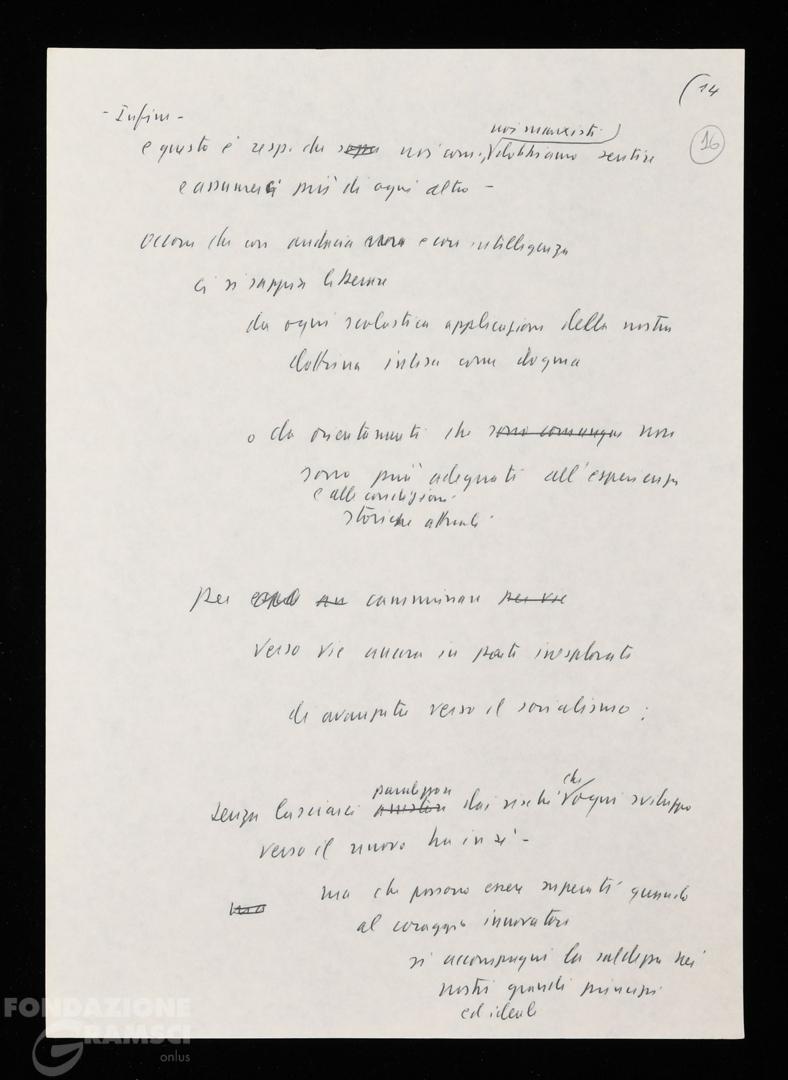 (14
16
- Infine -
noi marxisti
e questo è resp. che sopra noi com., dobbiamo sentire
e assumerci più di ogni altro -
occorre che con audacia e con intelligenza
ci si sappia liberare
da ogni scolastica applicazione della nostra
dottrina intesa come dogma
o da orientamenti che sono comunque non
sono più adeguati all'esperienza
e alle condizioni
storiche attuali.
per camminare per vie
verso vie ancora in parte inesplorate
di avanzata verso il socialismo;
paralizzare
che
senza lasciarci arrestare dai rischi ogni sviluppo
verso il nuovo ha in sé -
ma che possono essere superati quando
ma
al coraggio innovatore
si accompagni la saldezza nei
nostri grandi principi
ed ideali
FONDAZIONE
GRAMSCI
onlus